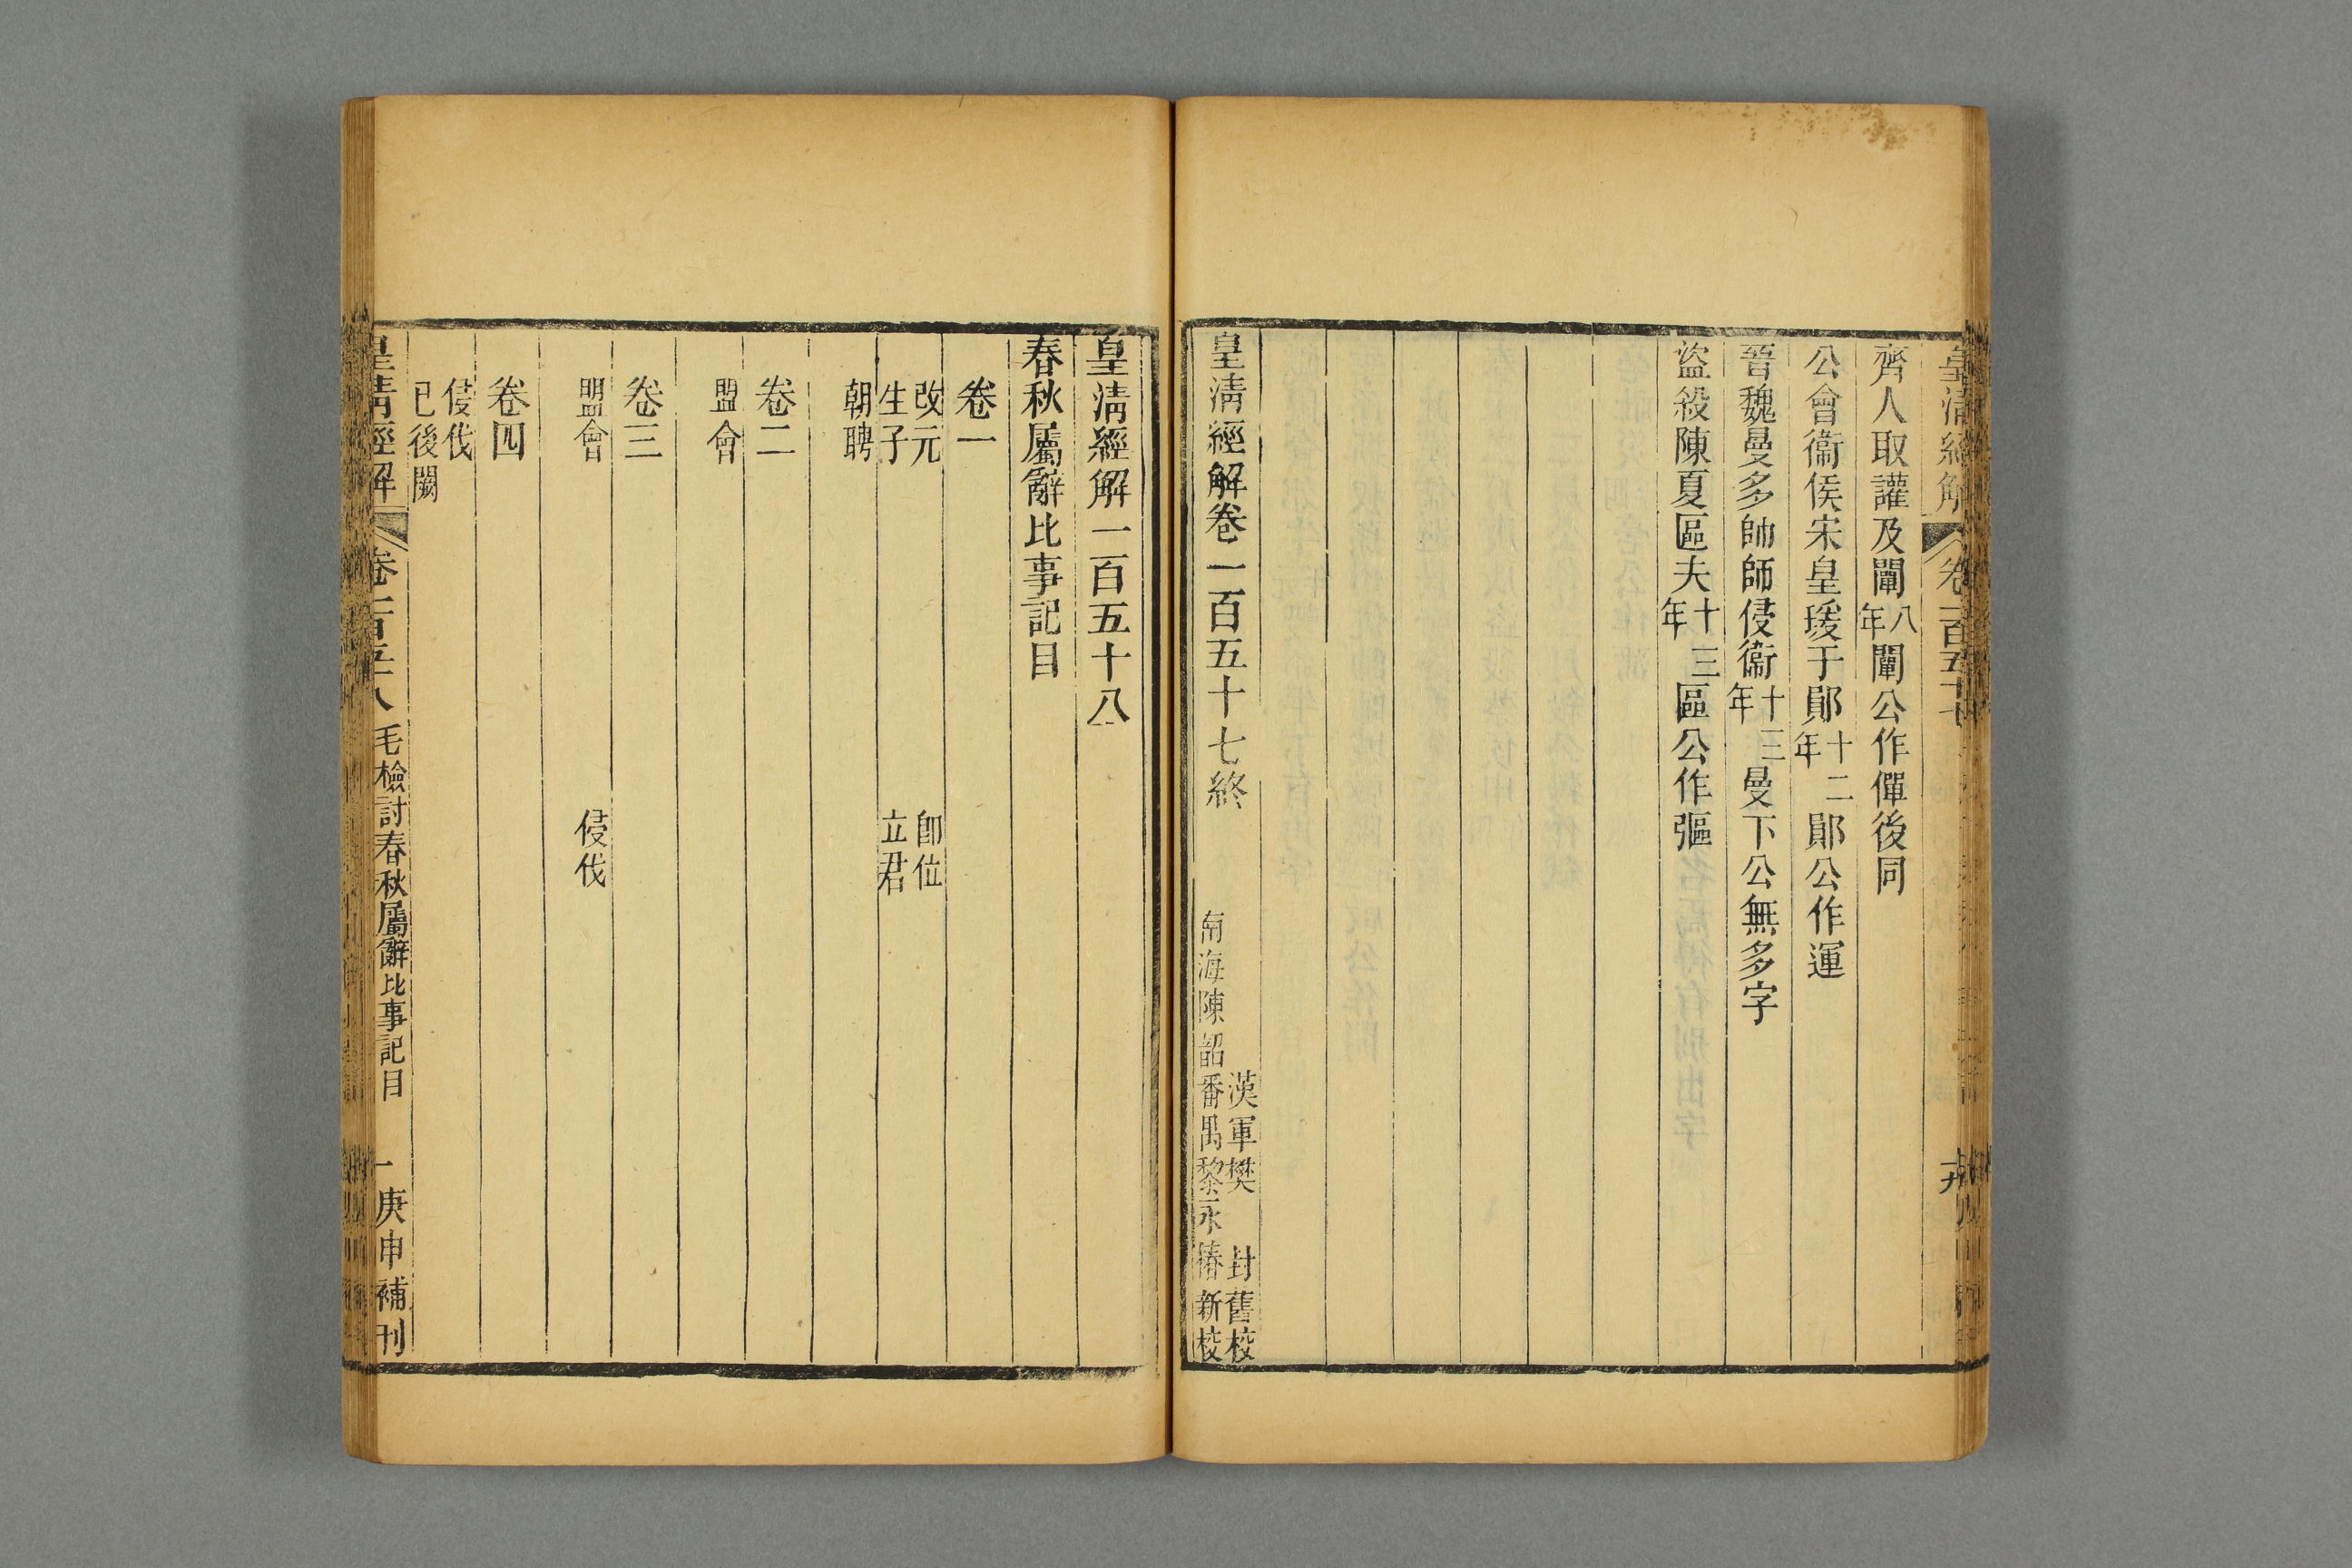 皇清經解 卷一百五十七
齊人取讙及闡八年闡公作僤後同
公會衞侯宋皇瑗于鄖十二年鄖公作運
晉魏曼多帥師侵衞十三年曼下公無多字
盜殺陳夏區夫十三年區公作彄
皇淸經解卷一百五十七終
漢軍樊封舊校
南海陳韶番禺黎永椿新校
皇淸經解一百五十八
春秋屬辭比事記目
卷一
改元 卽位
生子 立君
朝聘
卷二
盟會
卷三
盟會 侵伐
卷四
侵伐
已後闕
皇清經解 卷一百五十八 毛檢討春秋屬辭比事記目 一 庚申補刊